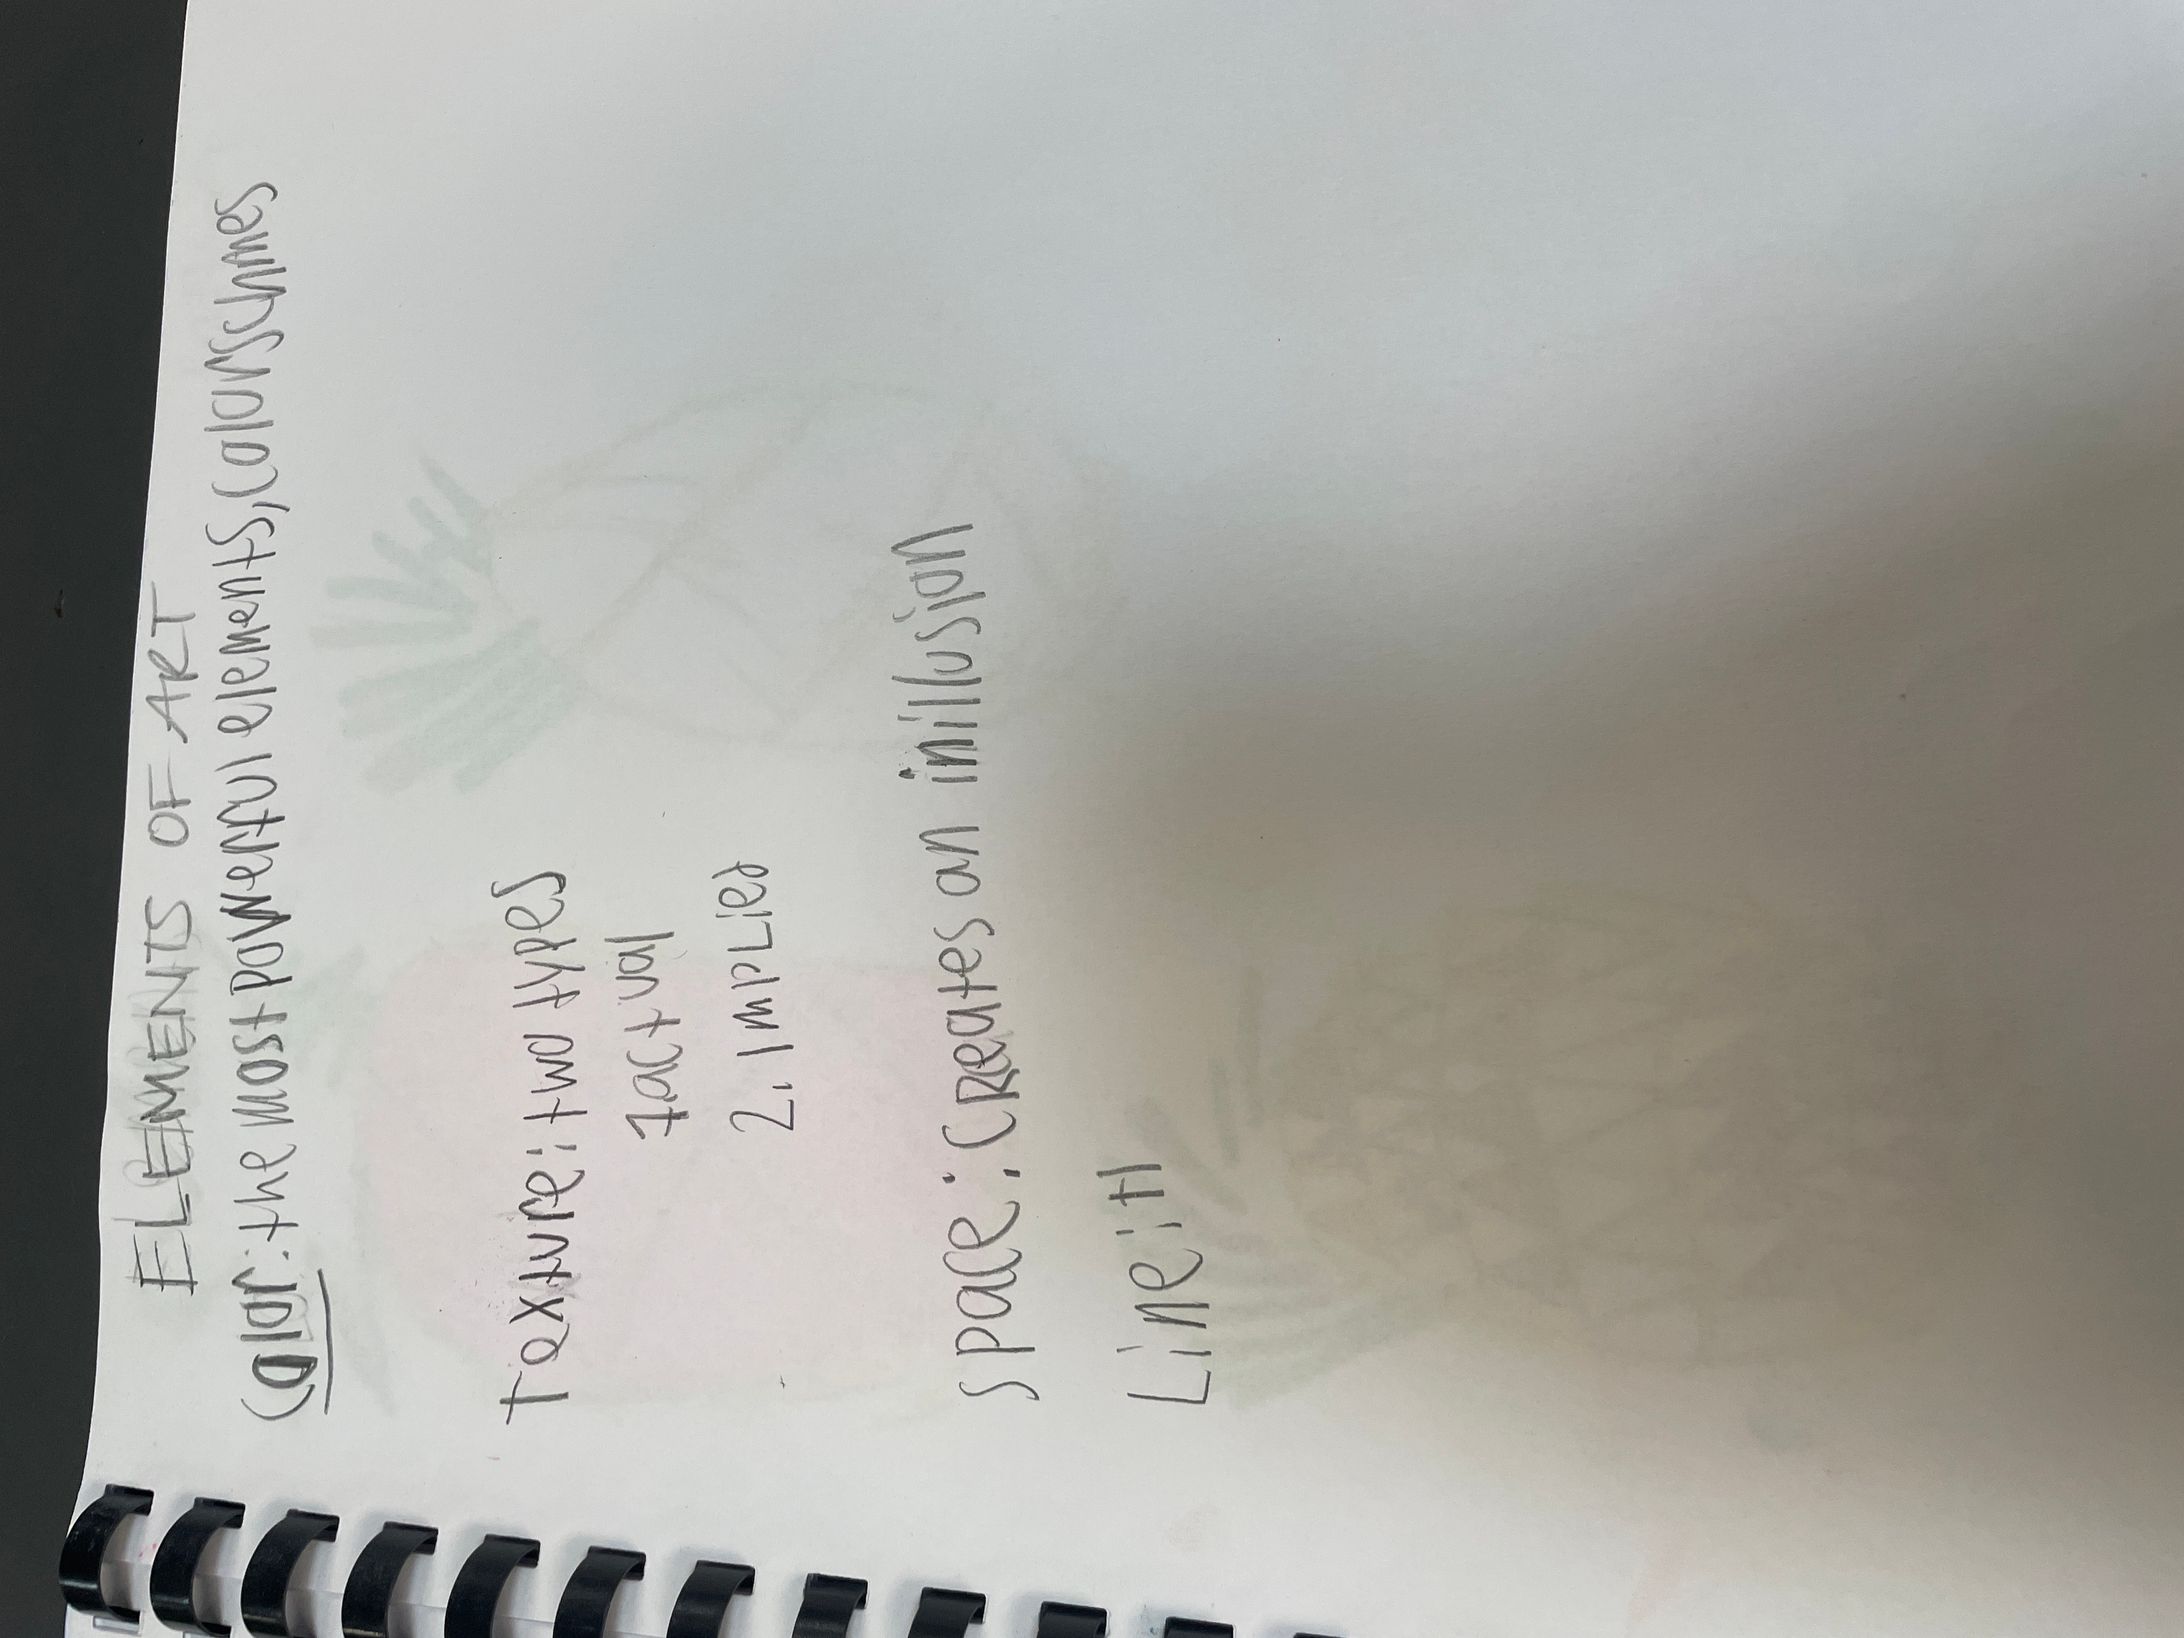 ELEMENTS OF ART
Color: the most powerful elements, colorschmes
Texture: two types
1actual
2. implied
space: Creates an inillusion
Line: tl